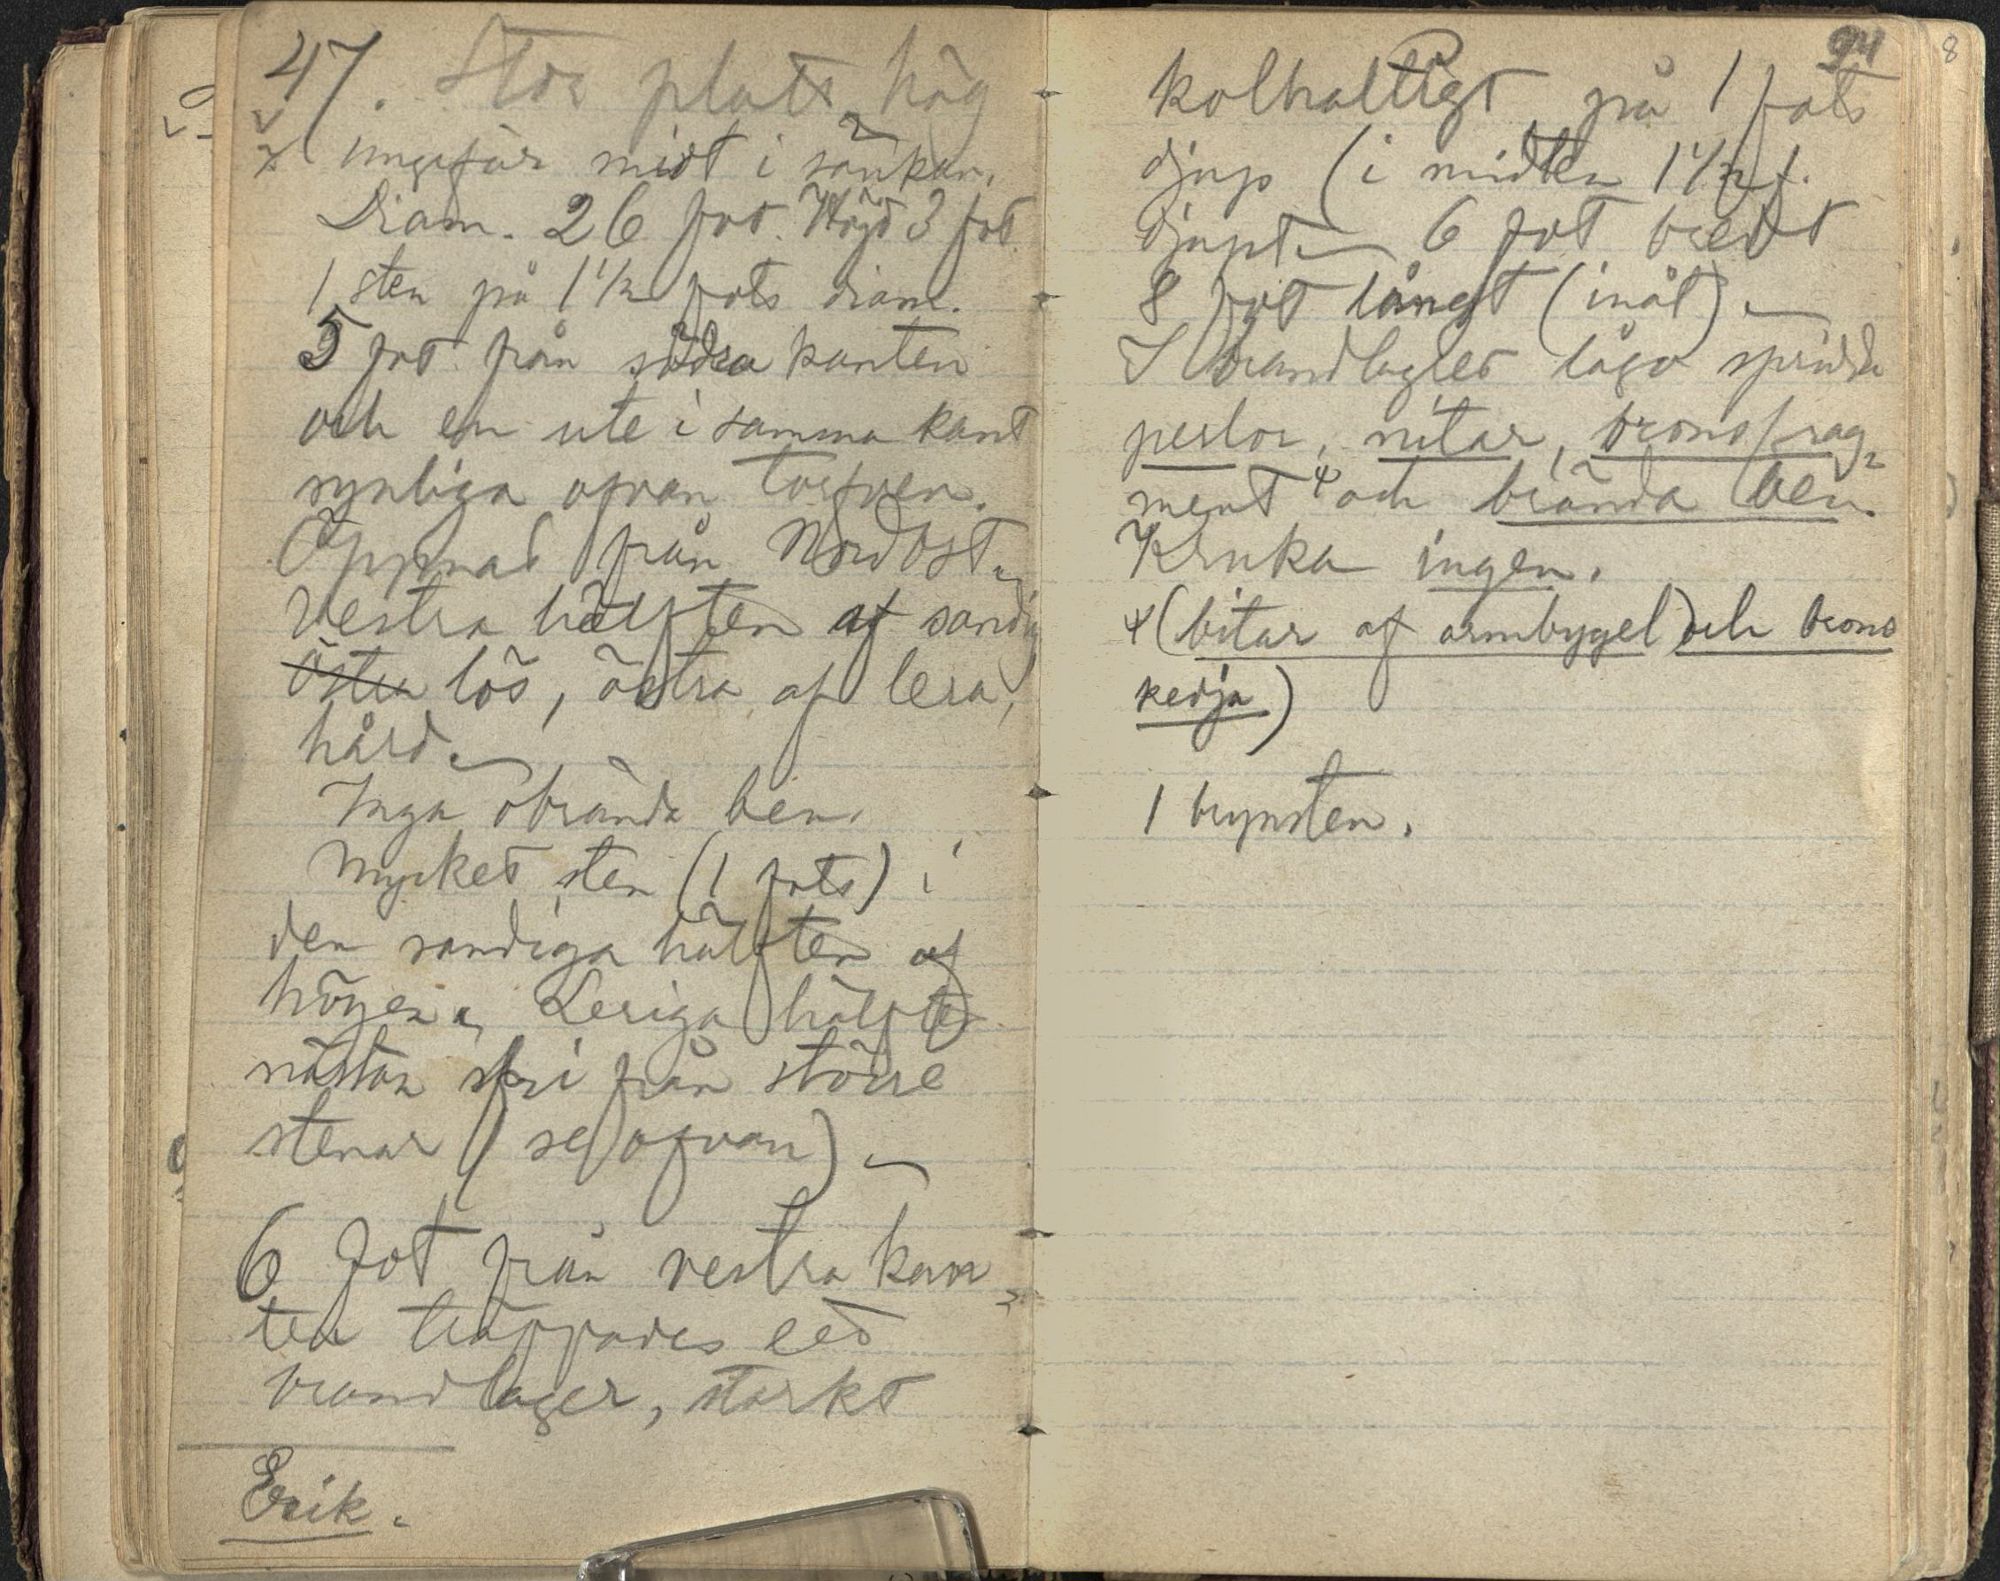 47. Stor platt hög
ungefär midt i sänkan.
Diam. 26 fot. Höjd 3 fot.
1 sten på 1 1/2 fots diam.
5 fot från södra kanten
och en ute i samma kant
synliga ofvan torfven.
Öppnad från Nordost.
Vestra hälften af sandig
östra lös, östra af lera,
hård.
Inga obrända ben.
Mycket sten (1 fots) i
den sandiga hälften af
högen. Leriga hälften
nästan fri från större
stenar (se ofvan)
6 fot från vestra kan-
ten träffades ett
brandlager, starkt
Erik.
94
kolhaltigt på 1 fots
djup (i midten 1 1/2 f.
djupt 6 fot bredt
8 fot långt (inåt)
I brandlagret lågo spridda
perlor, nitar, bronsfrag-
ment och brända ben.
Kruka ingen.
(bitar af armbygel) och brons
kedja)
1 brynsten.
8